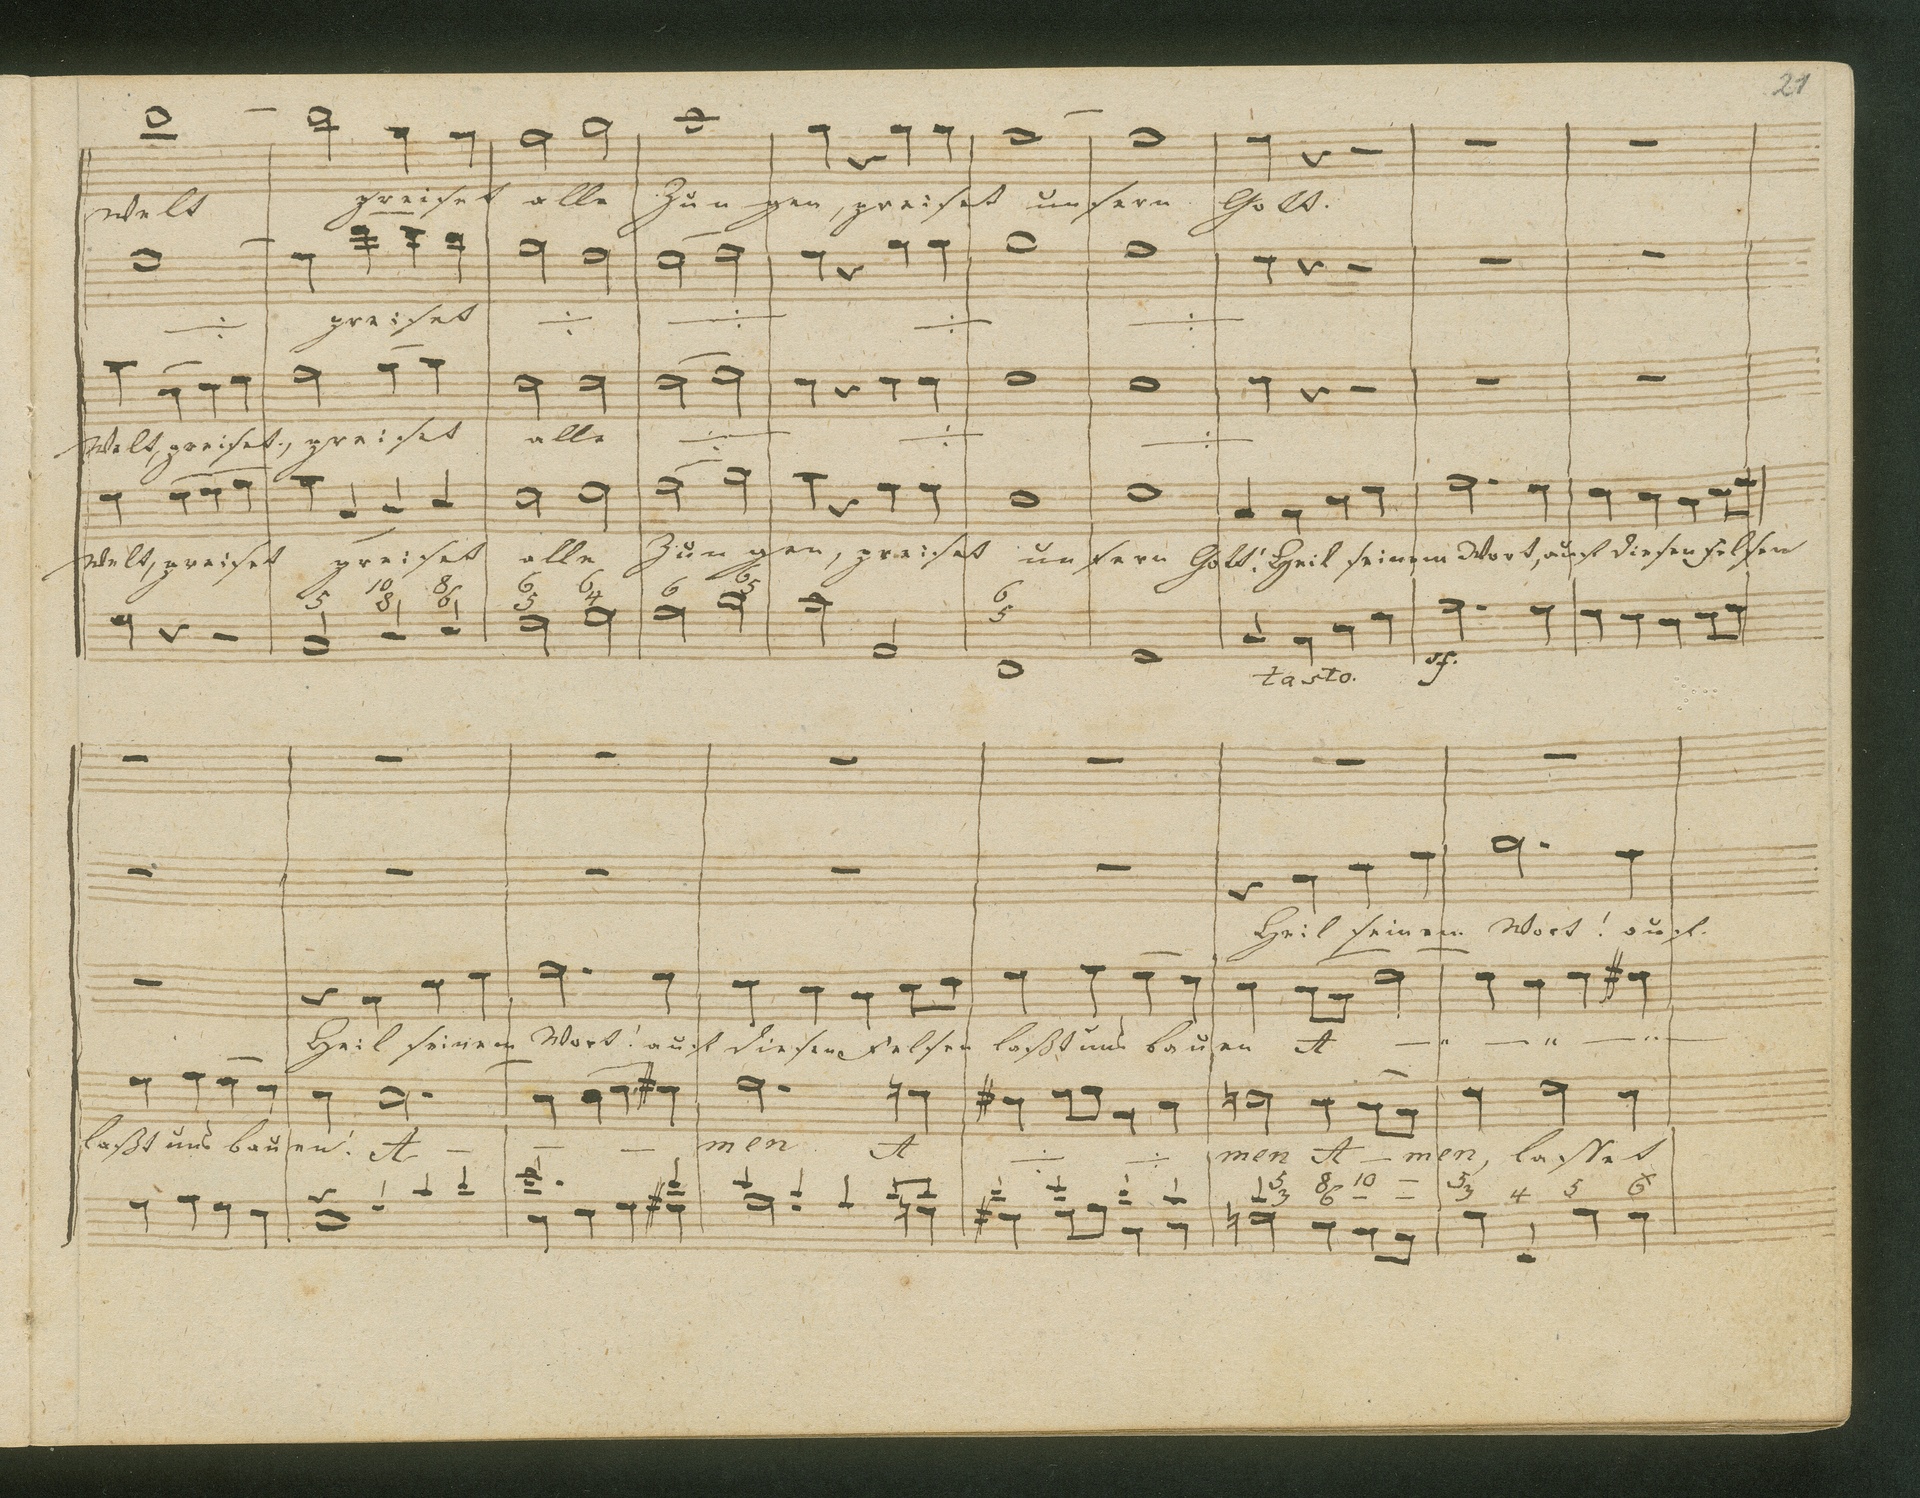 21
Welt preiset alle Zungen, preiset unsern Gott.
preiset
Welt, preiset, preiset alle
Welt, preiset preiset alle Zungen, preiset unsern Gott! Heil seinem Wort, auf diesen Felsen
5 10 8 8 6 6 5 6 4 6 6 5 6 5
tasto. sf.
Heil seinem Wort! auf
Heil seinem Wort! auf diesen Felsen laßt uns bauen A
laßt uns bauen! A — — — men A men A — men, lasset
5 3 8 6 10 5 3 4 5 6